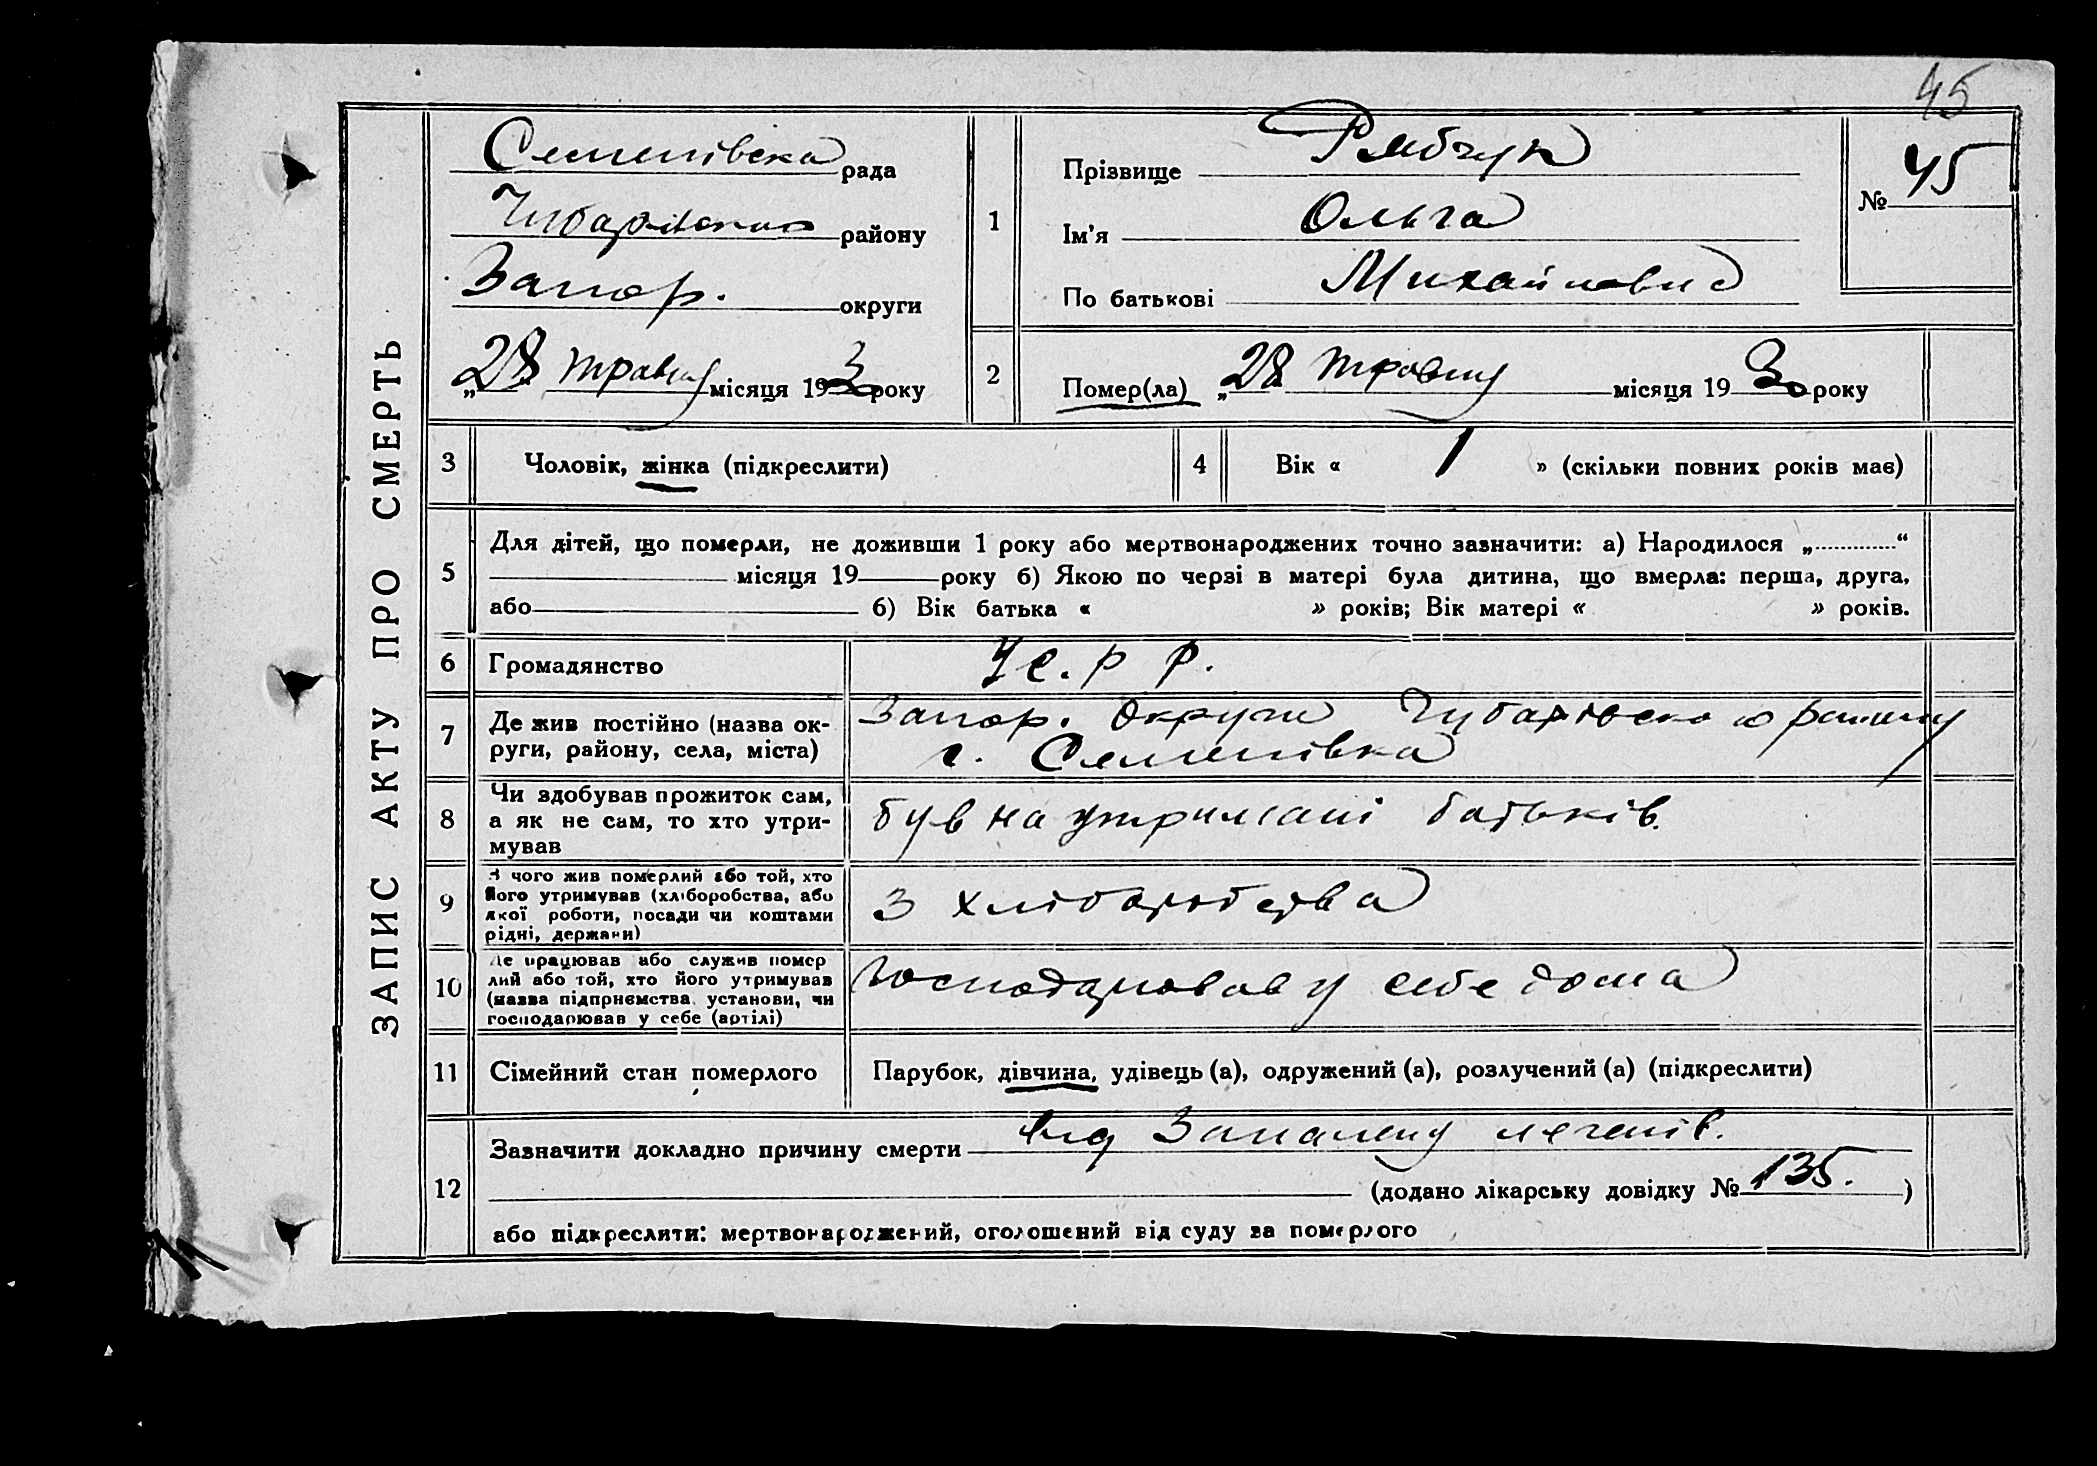 45
ЗАПИС АКТУ ПРО СМЕРТЬ
Семенівська рада
Чубарівського району
Запор. округи
„28 травня місяця 1930 року
1
Прізвище Рябчук
Ім'я Ольга
По батькові Михайловна
№ 45
2
Помер(ла) „28 травня місяця 1930 року
3 Чоловік, жінка (підкреслити)
4 Вік « 1 » (скільки повних років мав)
5
Для дітей, що померли, не доживши 1 року або мертвонароджених точно зазначити: а) Народилося „.............“
місяця 19 року б) Якою по черзі в матері була дитина, що вмерла: перша, друга,
або б) Вік батька « » років; Вік матері « » років.
6 Громадянство У.С.Р Р.
7
Де жив постійно (назва ок-
руги, району, села, міста)
Запор. округи Чубарівського району
с. Семенівка
8
Чи здобував прожиток сам,
а як не сам, то хто утри-
мував
був на утримані батьків.
9
З чого жив померлий або той, хто
його утримував (хліборобства, або
якої роботи, посади чи коштами
рідні, держави)
З хліборобства
10
Де працював або служив помер
лий або той, хто його утримував
(назва підприємства, установи, чи
господарював у себе (артілі)
Господарював у себе дома
11 Сімейний стан померлого
Парубок, дівчина, удівець (а), одружений (а), розлучений (а) (підкреслити)
12
Зазначити докладно причину смерти від Запаленя легенів.
(додано лікарську довідку № 135. )
або підкреслити: мертвонароджений, оголошений від суду за померлого